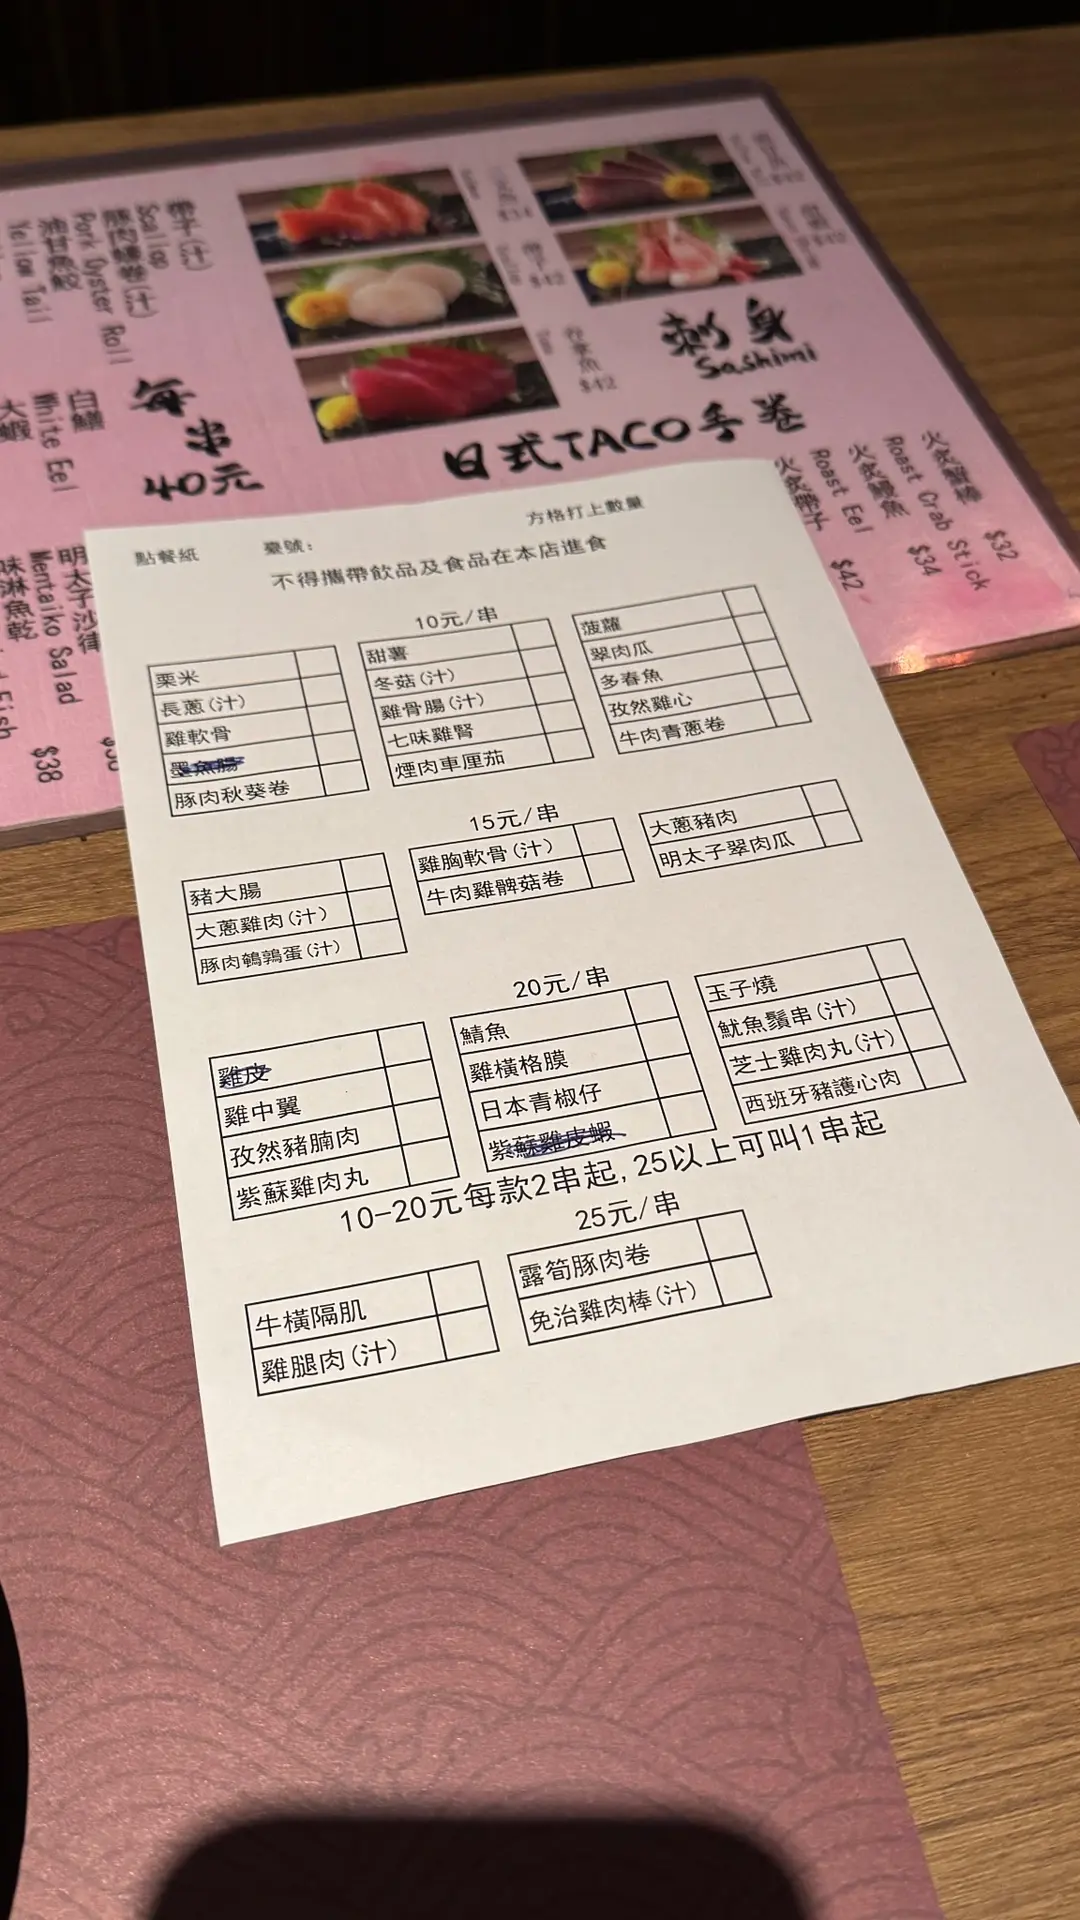 帶子(汁)
Scallop
豚肉蠔卷(汁)
Pork Oyster Roll
油甘魚鮫
Yellow Tail
白鱔
White Eel
大蝦
每串
40元
明太子沙律
Mentaiko Salad
$38
味淋魚乾
$34
帶子
$42
吞拿魚
$42
刺身
Sashimi
日式TACO手卷
火炙蟹棒
Roast Crab Stick
$32
火炙鰻魚
Roast Eel
$34
火炙帶子
$42
點餐紙
臺號:
方格打上數量
不得攜帶飲品及食品在本店進食
10元/串
粟米
長蔥(汁)
雞軟骨
墨魚腸
豚肉秋葵卷
甜薯
冬菇(汁)
雞骨腸(汁)
七味雞腎
煙肉車厘茄
菠蘿
翠肉瓜
多春魚
孜然雞心
牛肉青蔥卷
15元/串
豬大腸
大蔥雞肉(汁)
豚肉鵪鶉蛋(汁)
雞胸軟骨(汁)
牛肉雞髀菇卷
大蔥豬肉
明太子翠肉瓜
20元/串
雞皮
雞中翼
孜然豬腩肉
紫蘇雞肉丸
鯖魚
雞橫格膜
日本青椒仔
紫蘇雞皮蝦
玉子燒
魷魚鬚串(汁)
芝士雞肉丸(汁)
西班牙豬護心肉
10-20元每款2串起,25以上可叫1串起
25元/串
牛橫隔肌
雞腿肉(汁)
露筍豚肉卷
免治雞肉棒(汁)